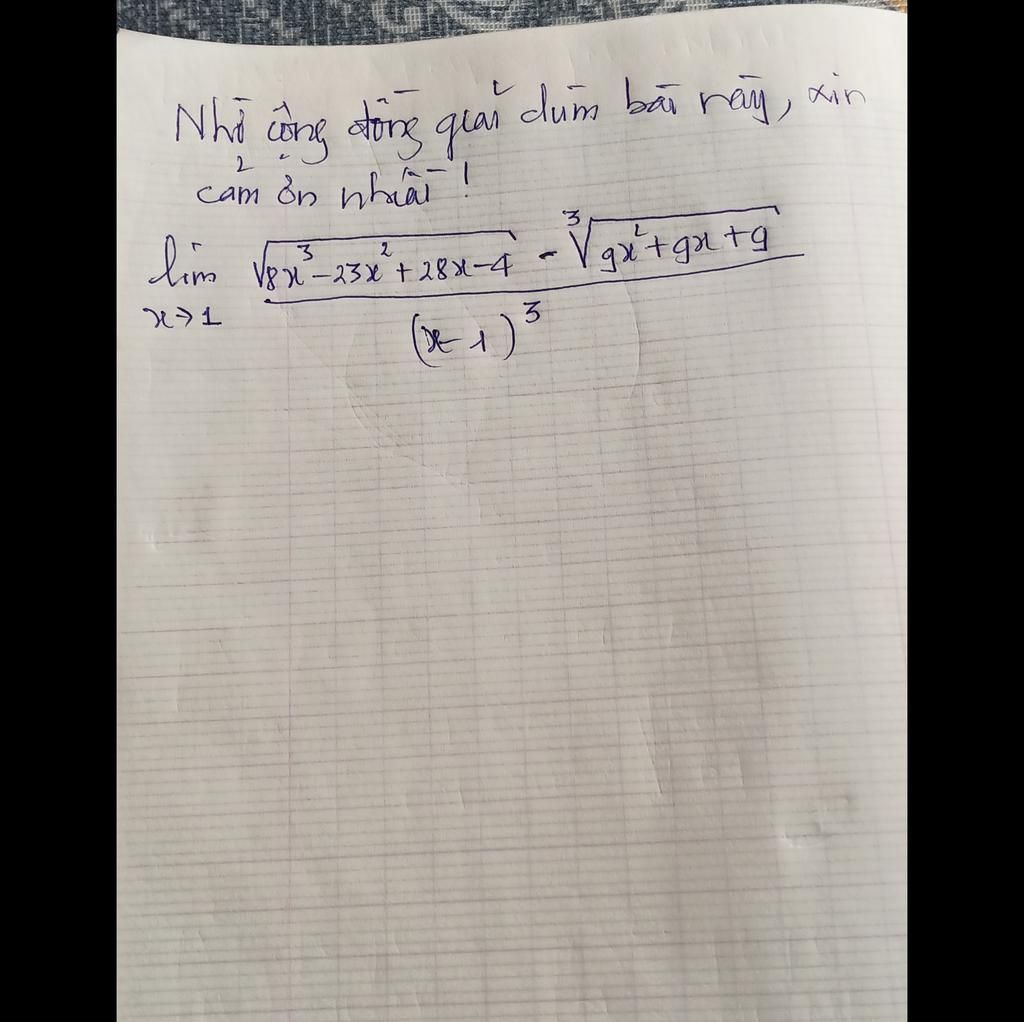 Nhờ cộng đồng giải dùm bài này, xin
cảm ơn nhiều!
lim √(8x³-23x²+28x-4) - ³√(9x²+9x+9)
x→1 (x-1)³